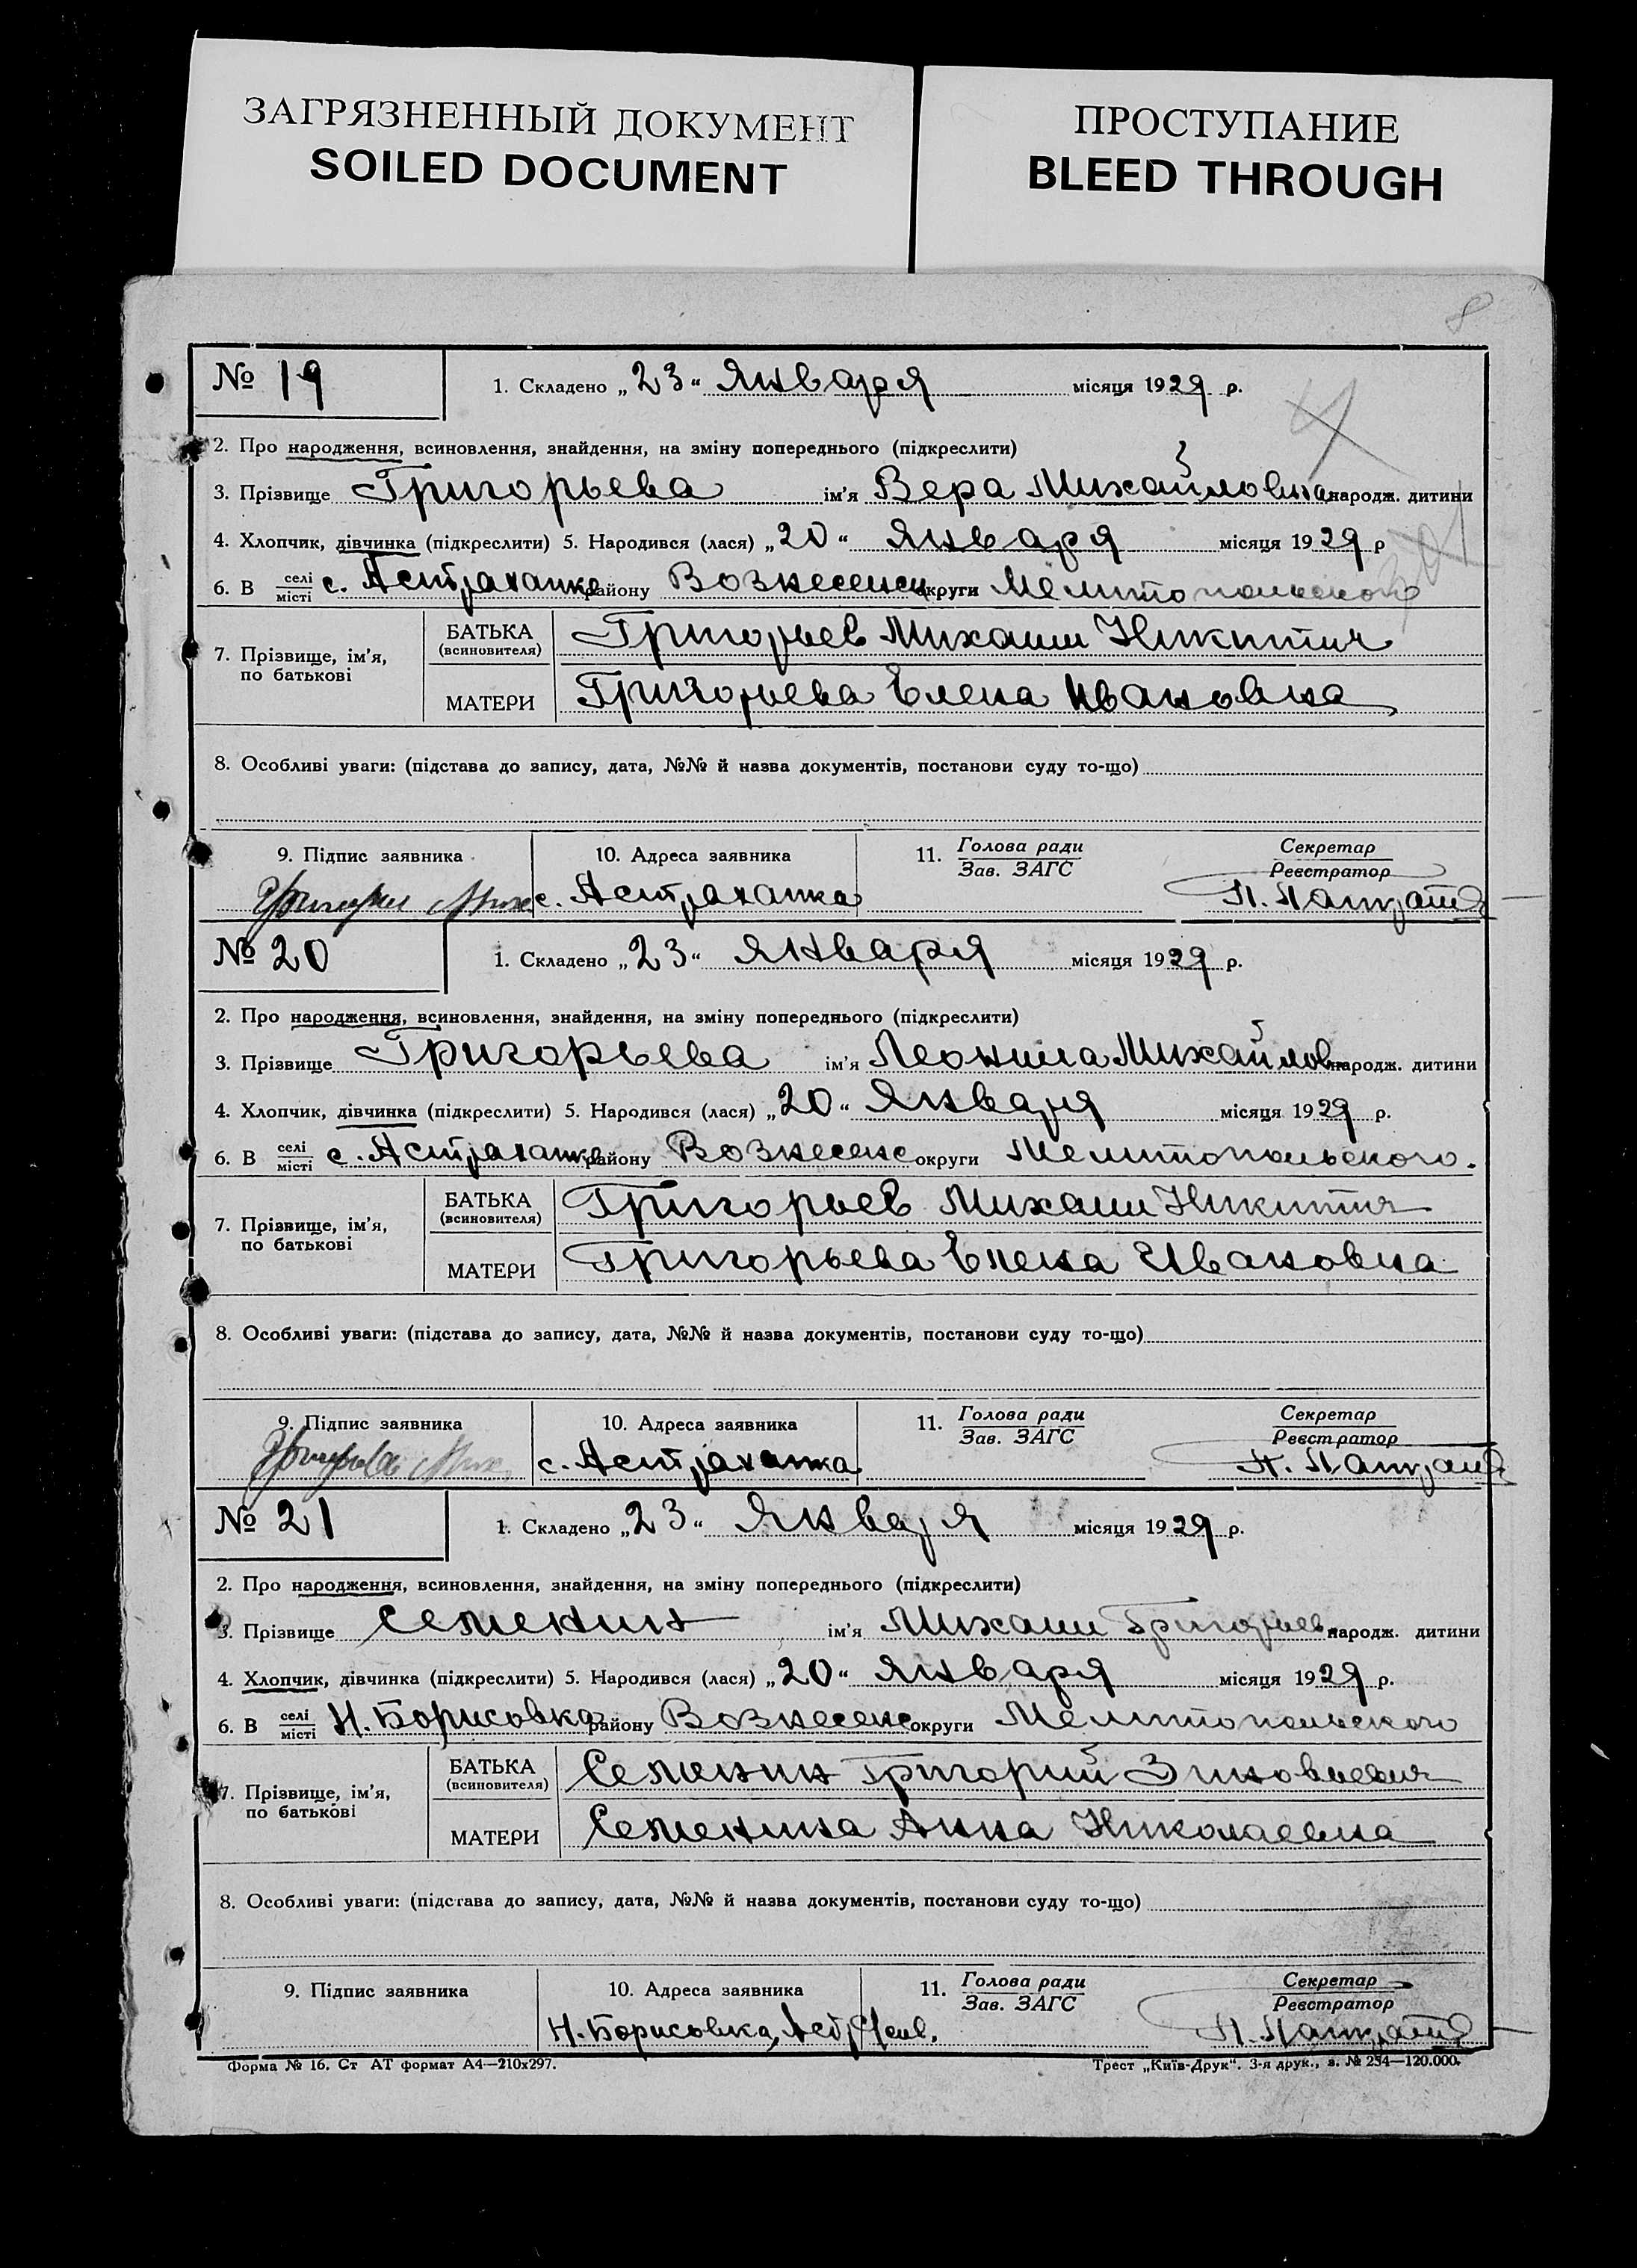 ЗАГРЯЗНЕННЫЙ ДОКУМЕНТ
SOILED DOCUMENT
ПРОСТУПАНИЕ
BLEED THROUGH
8
№ 19
1. Складено „23“ Января місяця 1929 р.
2. Про народження, всиновлення, знайдення, на зміну попереднього (підкреслити)
3. Прізвище Григорьева ім'я Вера Михайловна народж. дитини
4. Хлопчик, дівчинка (підкреслити) 5. Народився (лася) „20“ Января місяця 1929 р
6. В селі місті с. Астраханка району Вознесенск округи Мелитопольского
7. Прізвище, ім'я, по батькові
БАТЬКА (всиновителя) Григорьев Михаил Никитич
МАТЕРИ Григорьева Елена Ивановна
8. Особливі уваги: (підстава до запису, дата, №№ й назва документів, постанови суду то-що)
9. Підпис заявника 10. Адреса заявника 11. Голова ради Зав. ЗАГС Секретар Реєстратор
с. Астраханка
№ 20
1. Складено „23“ января місяця 1929 р.
2. Про народження, всиновлення, знайдення, на зміну попереднього (підкреслити)
3. Прізвище Григорьева ім'я Леонила Михайлов народж. дитини
4. Хлопчик, дівчинка (підкреслити) 5. Народився (лася) „20“ Января місяця 1929 р.
6. В селі місті с. Астраханка району Вознесенс округи Мелитопольского.
7. Прізвище, ім'я, по батькові
БАТЬКА (всиновителя) Григорьев Михаил Никитич
МАТЕРИ Григорьева Елена Ивановна
8. Особливі уваги: (підстава до запису, дата, №№ й назва документів, постанови суду то-що)
9. Підпис заявника 10. Адреса заявника 11. Голова ради Зав. ЗАГС Секретар Реєстратор
с. Астраханка
№ 21
1. Складено „23“ Января місяця 1929 р.
2. Про народження, всиновлення, знайдення, на зміну попереднього (підкреслити)
3. Прізвище Семенин ім'я Михаил Григорьев народж. дитини
4. Хлопчик, дівчинка (підкреслити) 5. Народився (лася) „20“ января місяця 1929 р.
6. В селі місті Н. Борисовка району Вознесенс округи Мелитопольского
7. Прізвище, ім'я, по батькові
БАТЬКА (всиновителя) Семенин Григорий Зиновьевич
МАТЕРИ Семенина Анна Николаевна
8. Особливі уваги: (підстава до запису, дата, №№ й назва документів, постанови суду то-що)
9. Підпис заявника 10. Адреса заявника 11. Голова ради Зав. ЗАГС Секретар Реєстратор
Н. Борисовка,
Форма № 16. Ст АТ формат А4—210х297. Трест „Київ-Друк“. 3-я друк., з. № 254—120.000.